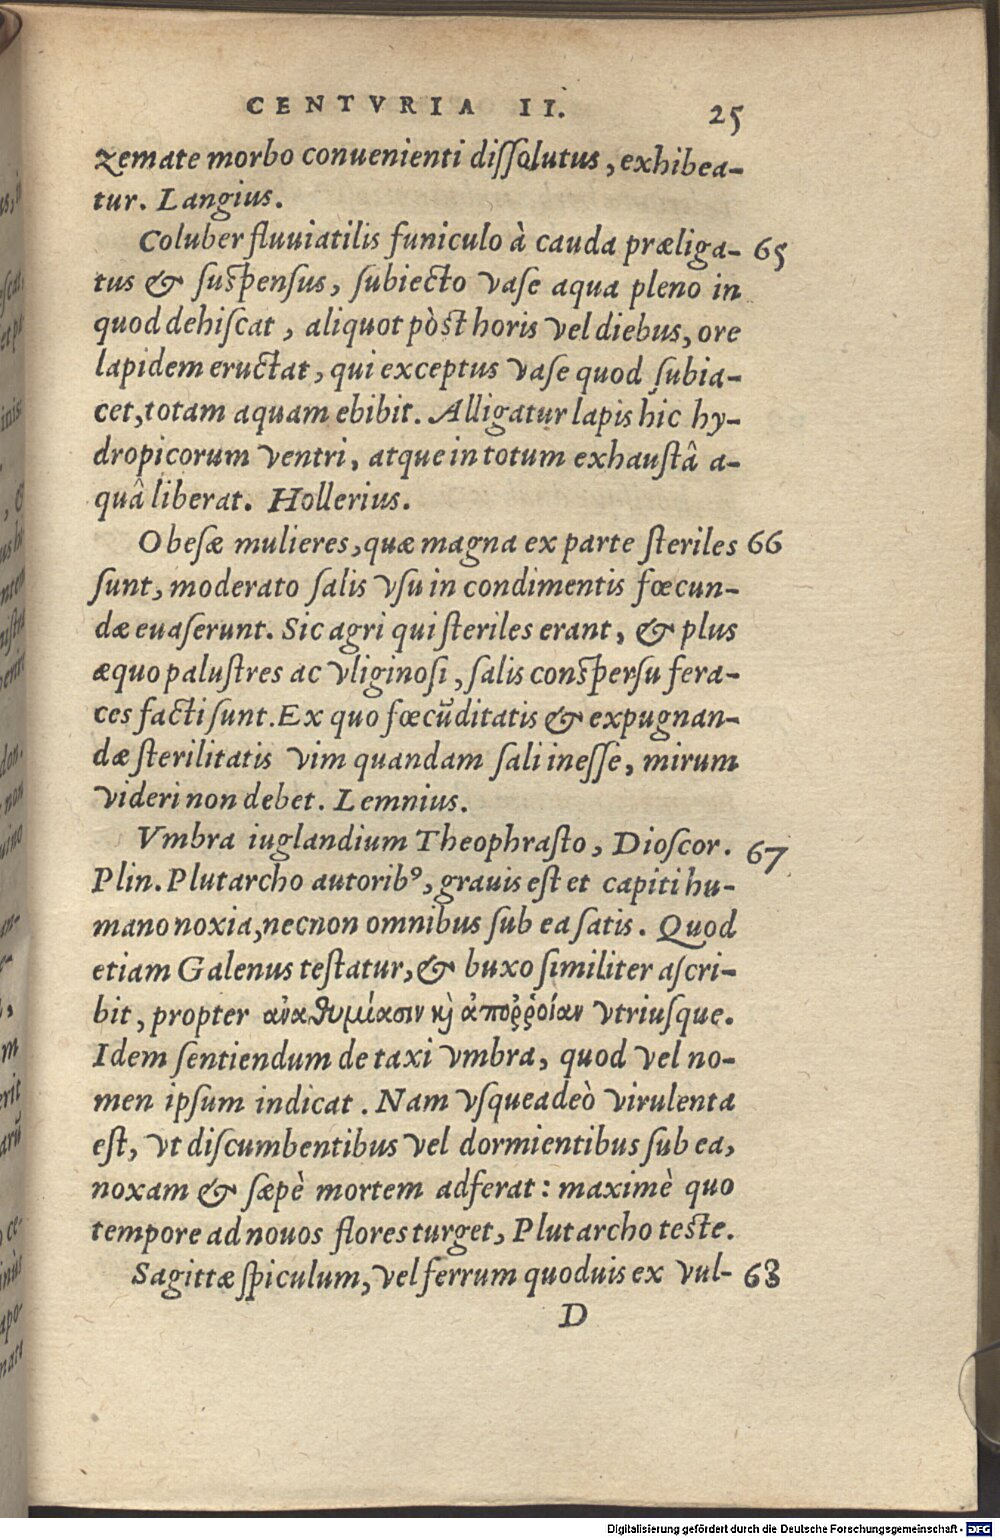 CENTVRIA II. 25
zemate morbo conuenienti dissolutus, exhibea-
tur. Langius.
Coluber fluuiatilis funiculo à cauda præliga- 65
tus & suspensus, subiecto vase aqua pleno in
quod dehiscat, aliquot pòst horis vel diebus, ore
lapidem eructat, qui exceptus vase quod subia-
cet, totam aquam ebibit. Alligatur lapis hic hy-
dropicorum ventri, atque in totum exhaustâ a-
quâ liberat. Hollerius.
Obesæ mulieres, quæ magna ex parte steriles 66
sunt, moderato salis vsu in condimentis fœcun-
dæ euaserunt. Sic agri qui steriles erant, & plus
æquo palustres ac vliginosi, salis conspersu fera-
ces facti sunt. Ex quo fœcūditatis & expugnan-
dæ sterilitatis vim quandam sali inesse, mirum
videri non debet. Lemnius.
Vmbra iuglandium Theophrasto, Dioscor. 67
Plin. Plutarcho autoribꝰ, grauis est et capiti hu-
mano noxia, necnon omnibus sub ea satis. Quod
etiam Galenus testatur, & buxo similiter ascri-
bit, propter ἀναθυμίασιν κὶ ἀποῤῥοίαν vtriusque.
Idem sentiendum de taxi vmbra, quod vel no-
men ipsum indicat. Nam vsqueadeò virulenta
est, vt discumbentibus vel dormientibus sub ea,
noxam & sæpè mortem adferat: maximè quo
tempore ad nouos flores turget, Plutarcho teste.
Sagittæ spiculum, vel ferrum quoduis ex vul- 68
D
Digitalisierung gefördert durch die Deutsche Forschungsgemeinschaft - DFG